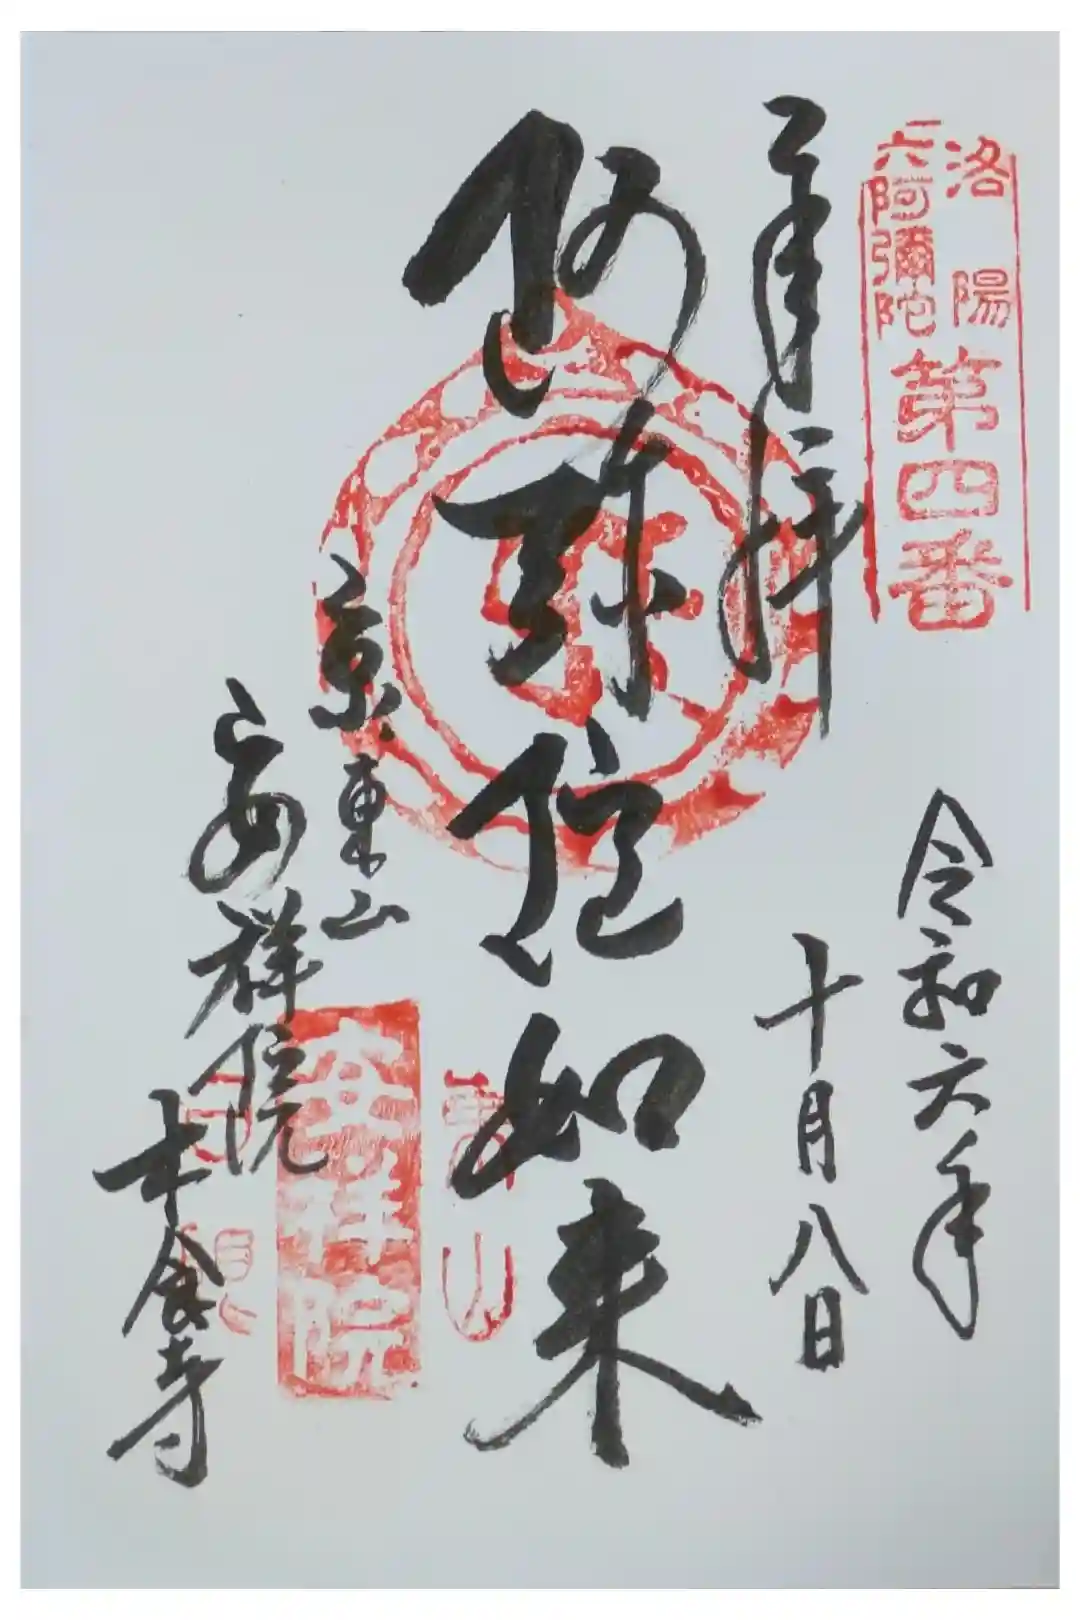 洛陽
六阿彌陀
第四番
奉拝
令和六年
十月八日
阿弥陀如来
京東山
安祥院
木食寺
安祥院
東山
日限